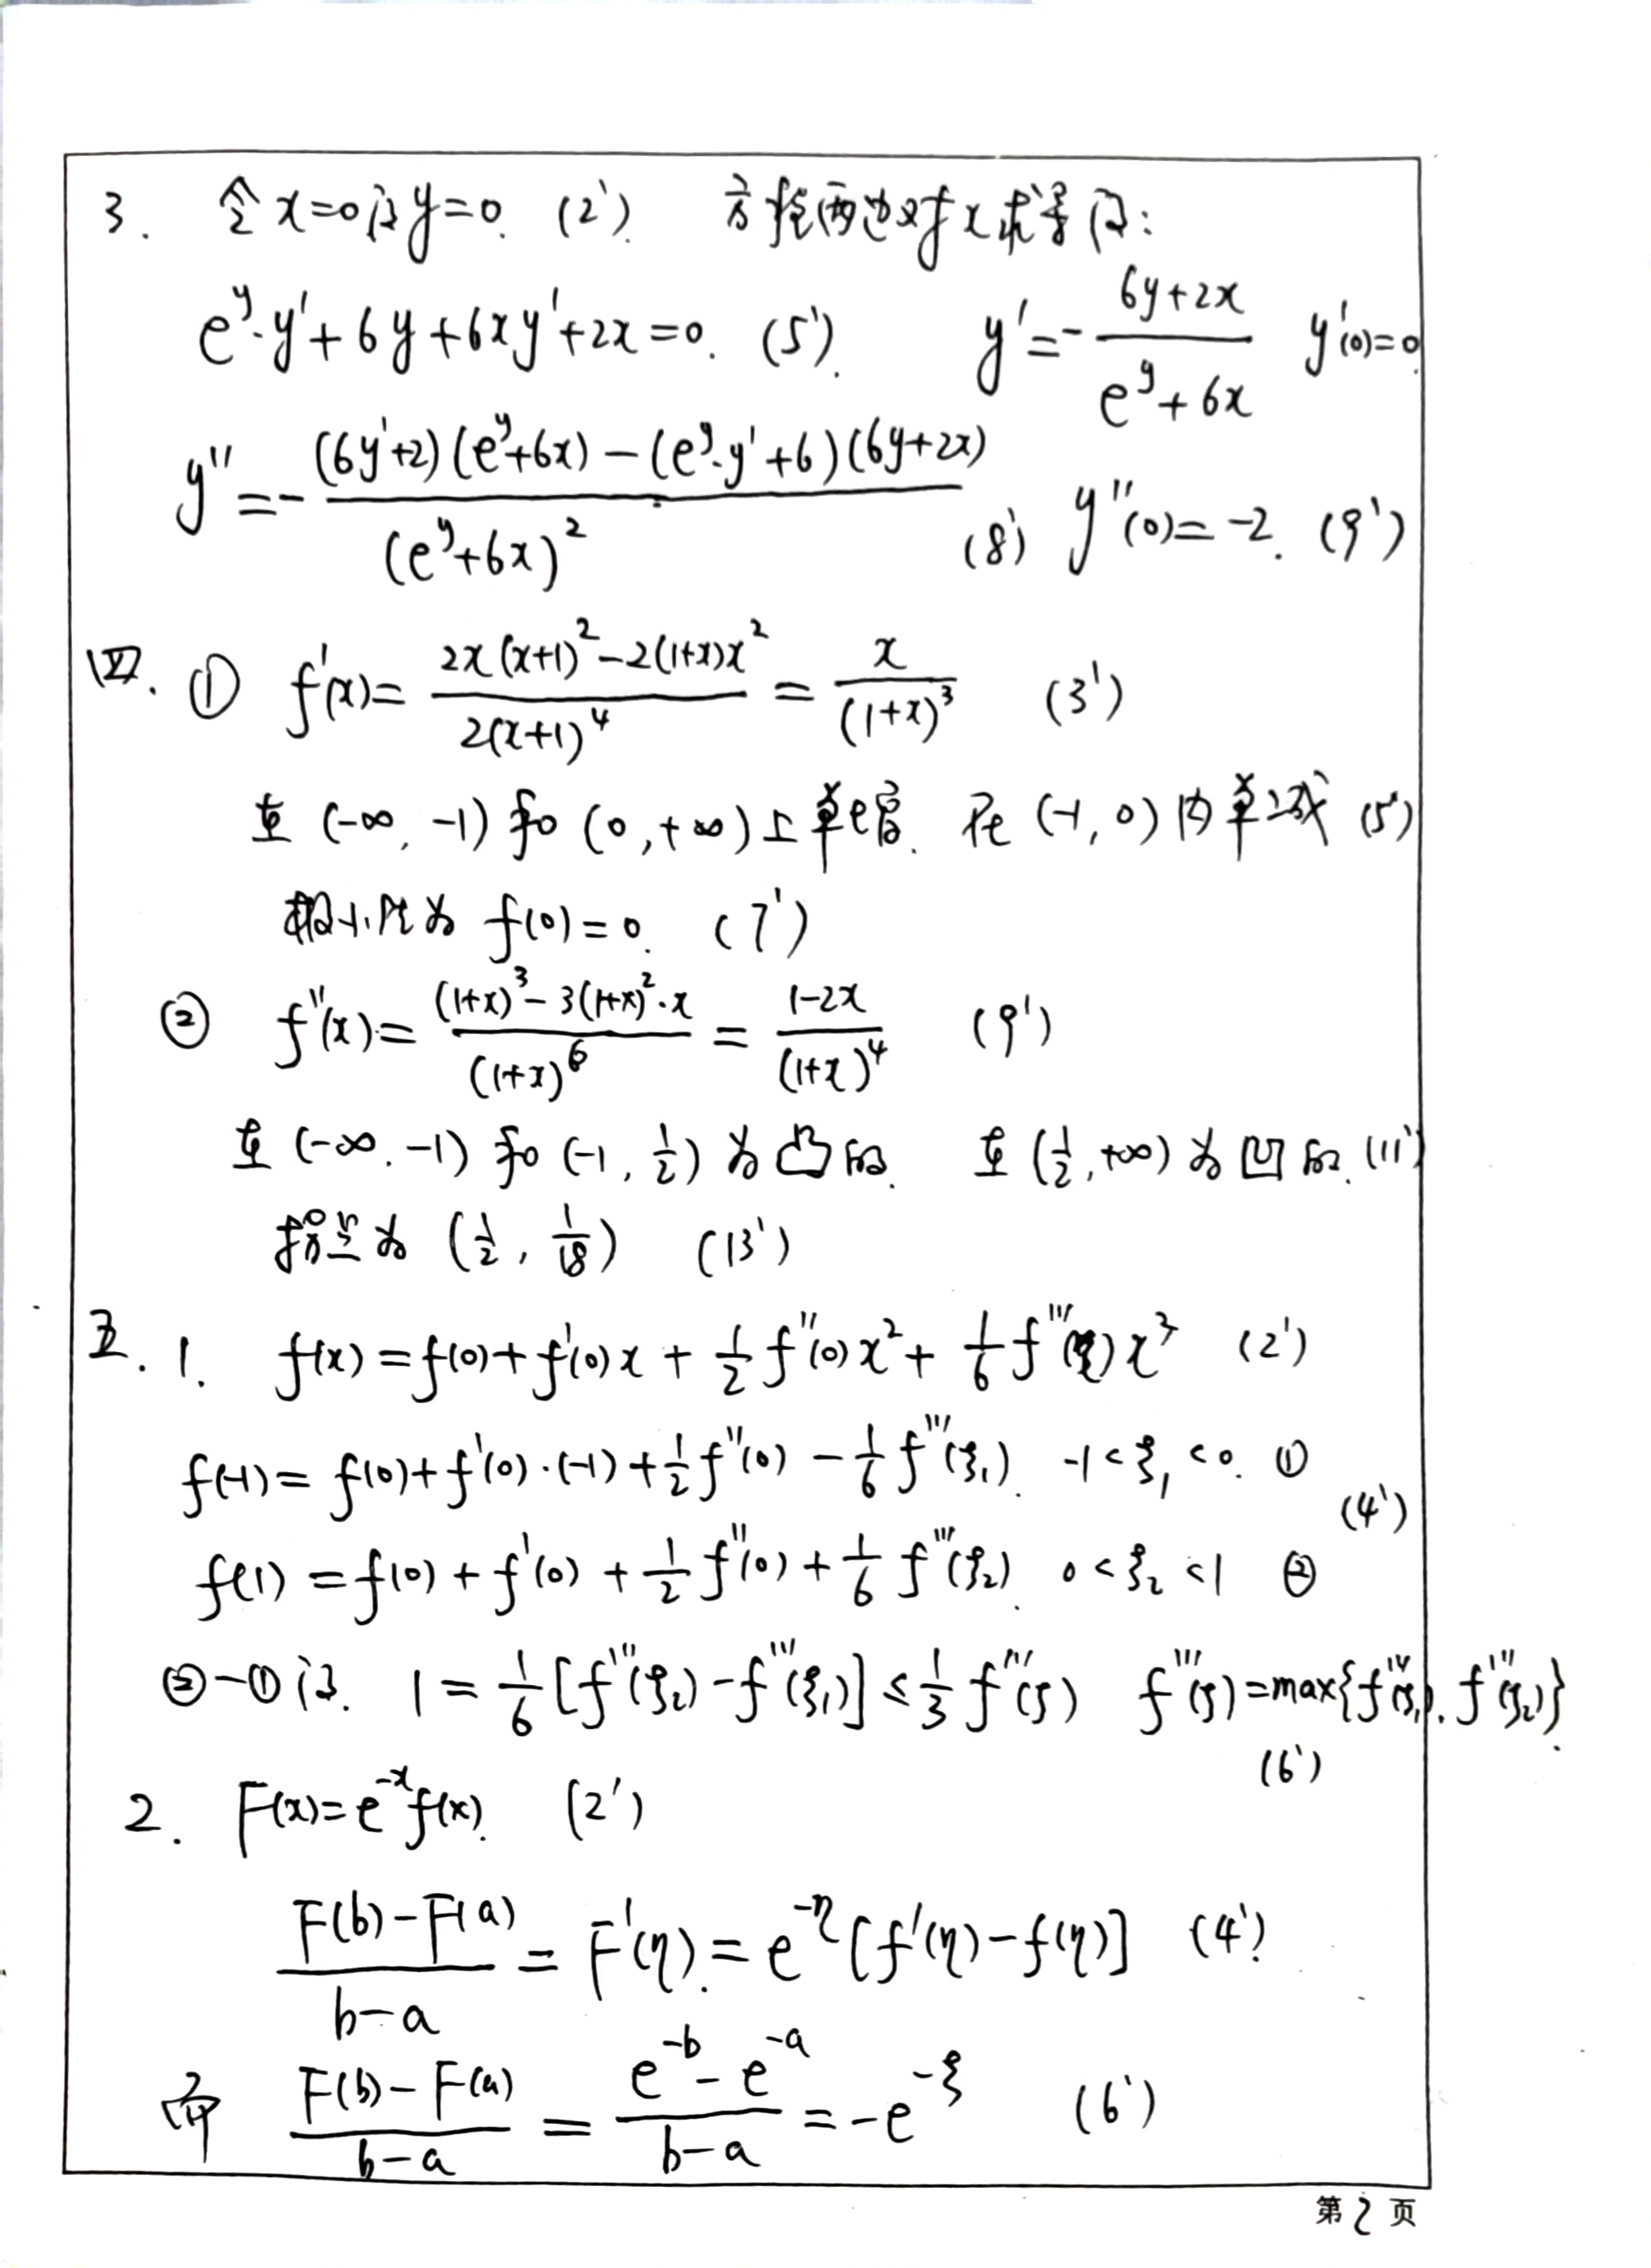 3. 令x=0得y=0. (2'). 方程两边对x求导得:
e^y·y'+6y+6xy'+2x=0. (5'). y'=-\frac{6y+2x}{e^y+6x} y'(0)=0.
y''=-\frac{(6y'+2)(e^y+6x)-(e^y·y'+6)(6y+2x)}{(e^y+6x)^2} (8') y''(0)=-2. (9')
四. ① f'(x)=\frac{2x(x+1)^2-2(1+x)x^2}{2(x+1)^4}=\frac{x}{(1+x)^3} (3')
在(-∞,-1)和(0,+∞)上单增. 在(-1,0)内单减 (5')
极小值为 f(0)=0. (7')
② f''(x)=\frac{(1+x)^3-3(1+x)^2·x}{(1+x)^6}=\frac{1-2x}{(1+x)^4} (9')
在(-∞,-1)和(-1,\frac{1}{2})为凸的. 在(\frac{1}{2},+∞)为凹的. (11')
拐点为(\frac{1}{2},\frac{1}{18}) (13')
五. 1. f(x)=f(0)+f'(0)x+\frac{1}{2}f''(0)x^2+\frac{1}{6}f'''(ξ)x^3 (2')
f(-1)=f(0)+f'(0)·(-1)+\frac{1}{2}f''(0)-\frac{1}{6}f'''(ξ_1). -1<ξ_1<0. ①
(4')
f(1)=f(0)+f'(0)+\frac{1}{2}f''(0)+\frac{1}{6}f'''(ξ_2). 0<ξ_2<1 ②
②-①得. 1=\frac{1}{6}[f'''(ξ_2)-f'''(ξ_1)]≤\frac{1}{3}f'''(ξ) f'''(ξ)=max{f'''(ξ_1), f'''(ξ_2)}.
(6')
2. F(x)=e^{-x}f(x). (2')
\frac{F(b)-F(a)}{b-a}=F'(η)=e^{-η}[f'(η)-f(η)] (4')
而 \frac{F(b)-F(a)}{b-a}=\frac{e^{-b}-e^{-a}}{b-a}=-e^{-ξ} (6')
第2页